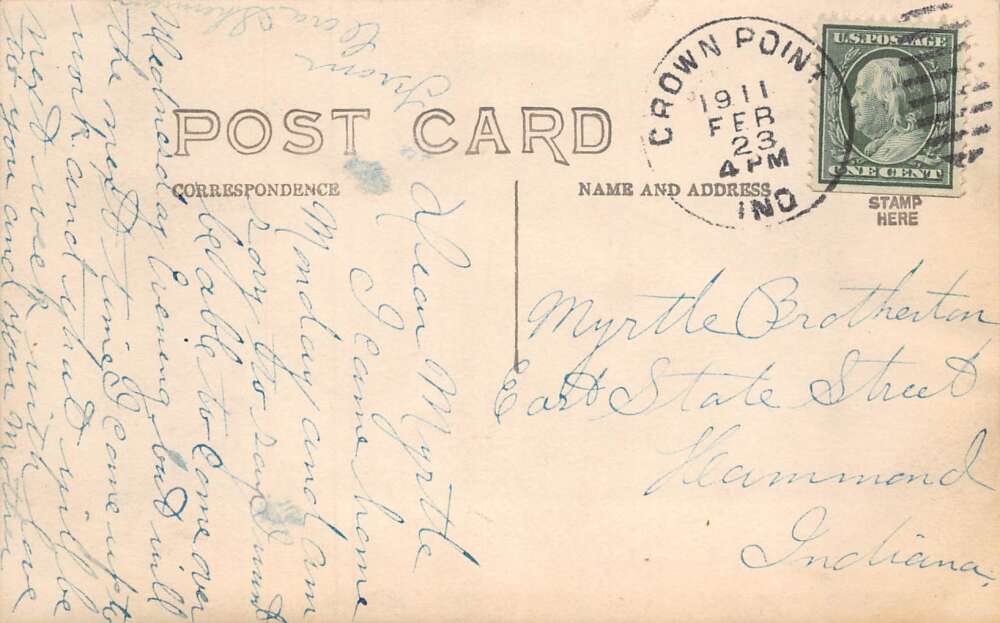 POST CARD
CORRESPONDENCE
NAME AND ADDRESS
STAMP
HERE
U.S. POSTAGE
ONE CENT
CROWN POINT
1911
FEB
23
4 PM
IND
Myrtle Brotherton
East State Street
Hammond
Indiana,
Dear Myrtle
I came home
Monday and am
sory to say I wont
be able to come over
Wednesday Evening but will
the next time I come up to
work and that will be
next week with love
to you and your Mother
From
Cora